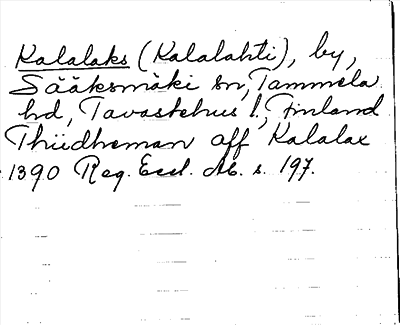 Kalalaks (Kalalahti), by,
Sääksmäki sn, Tammela
hd, Tavastehus l., Finland
Thiidheman aff Kalalax
1390 Reg. Eccl. Ab. s. 197.